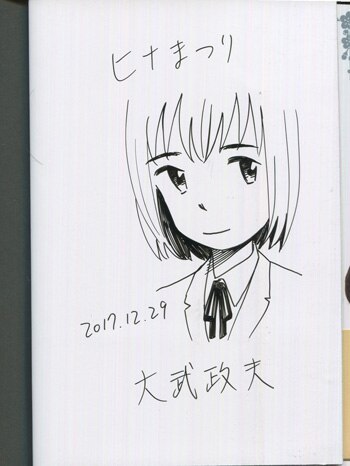 ヒナまつり
2017.12.29
大武政夫